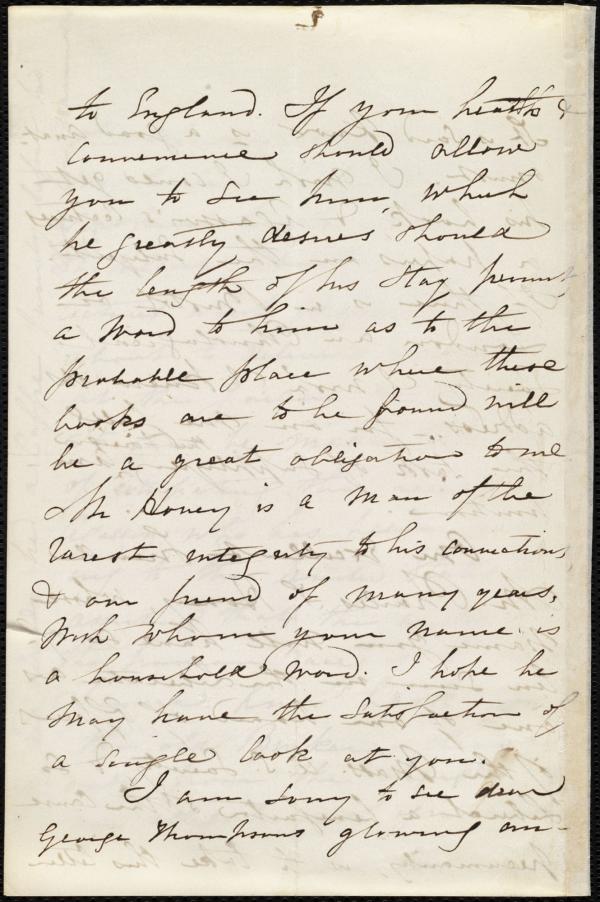 to England. If your health &
convenience should allow
you to see him, which
he greatly desires should
the length of his stay permit,
a word to him as to the
probable place where these
books are to be found will
be a great obligation to me
Mr Hovey is a man of the
rarest integrity to his convictions,
& our friend of many years,
with whom your name is
a household word. I hope he
may have the satisfaction of
a single look at you.
I am sorry to see dear
George Thompsons glowing an-